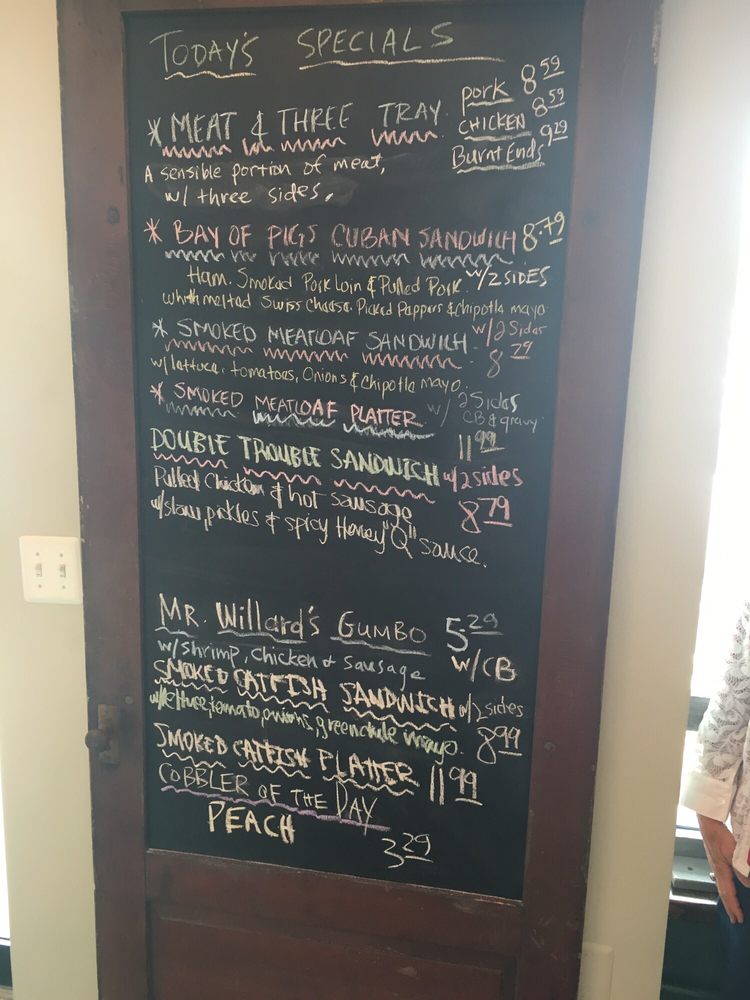 TODAY'S SPECIALS
* MEAT & THREE TRAY
pork 8 59
CHICKEN 8 59
Burnt Ends 9 29
A sensible portion of meat,
w/ three sides.
* BAY OF PIGS CUBAN SANDWICH 8.79
w/2 SIDES
Ham. Smoked Pork Loin & Pulled Pork
whith melted Swiss Cheese. Picked Peppers & chipotle mayo
* SMOKED MEATLOAF SANDWICH w/2 Sides
8 29
w/ lettuce. tomatoes, Onions & Chipotle mayo.
* SMOKED MEATLOAF PLATTER w/ 2 Sides
CB & gravy
11 99
DOUBLE TROUBLE SANDWICH w/2 sides
Pulled Chicken & hot sausage 8 79
w/slaw, pickles & spicy Honey "Q" sauce.
MR. Willard's GUMBO 5.29
w/shrimp, chicken & sausage w/CB
SMOKED CATFISH SANDWICH w/2 sides
w/lettuce, tomato, onions, greenchile mayo. 8 99
SMOKED CATFISH PLATTER 11 99
COBBLER OF THE DAY
PEACH
3 29